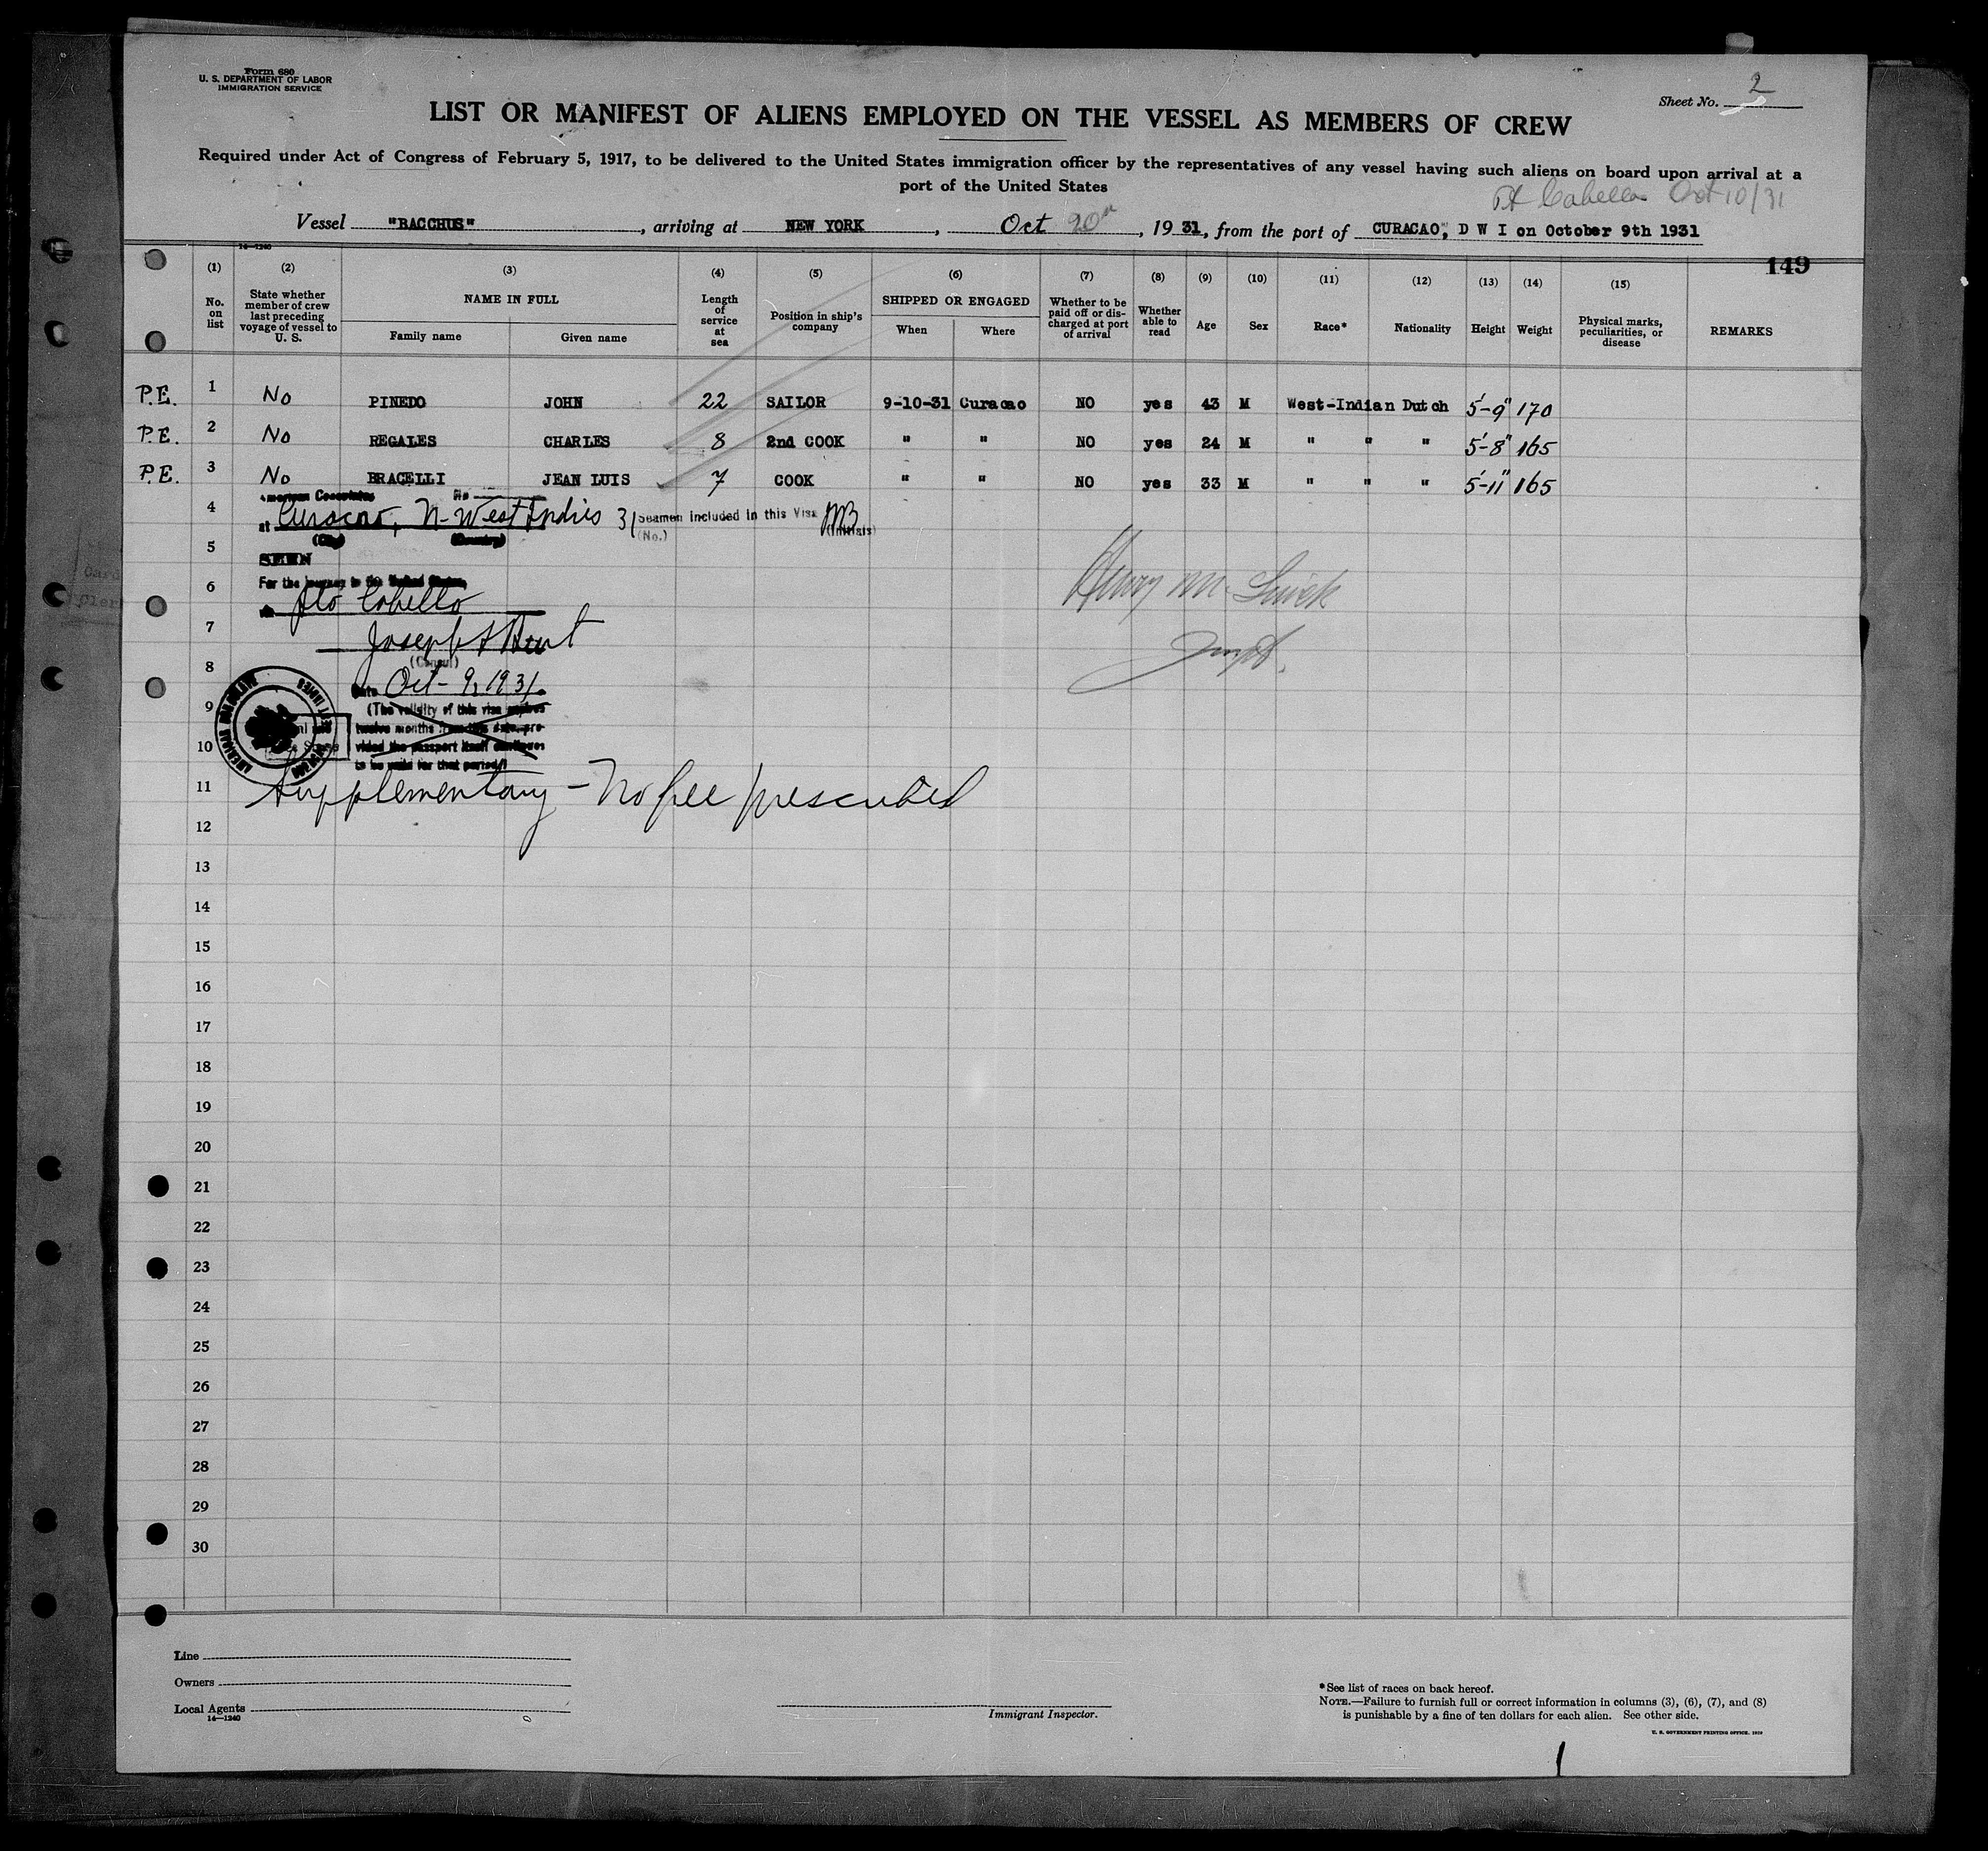 Form 680
U. S. DEPARTMENT OF LABOR
IMMIGRATION SERVICE
Sheet No. 2
LIST OR MANIFEST OF ALIENS EMPLOYED ON THE VESSEL AS MEMBERS OF CREW
Required under Act of Congress of February 5, 1917, to be delivered to the United States immigration officer by the representatives of any vessel having such aliens on board upon arrival at a
port of the United States
Pt Cabello Oct 10/31
Vessel "BACCHUS", arriving at NEW YORK, Oct 20th, 1931, from the port of CURACAO, D W I on October 9th 1931
14—1240
149
(1) (2) (3) (4) (5) (6) (7) (8) (9) (10) (11) (12) (13) (14) (15)
No. on list
State whether member of crew last preceding voyage of vessel to U. S.
NAME IN FULL
Family name Given name
Length of service at sea
Position in ship's company
SHIPPED OR ENGAGED
When Where
Whether to be paid off or discharged at port of arrival
Whether able to read
Age
Sex
Race*
Nationality
Height
Weight
Physical marks, peculiarities, or disease
REMARKS
P.E. 1 No PINEDO JOHN 22 SAILOR 9-10-31 Curacao NO yes 43 M West-Indian Dutch 5'-9" 170
P.E. 2 No REGALES CHARLES 8 2nd COOK " " NO yes 24 M " " " 5'-8" 165
P.E. 3 No BRACELLI JEAN LUIS 7 COOK " " NO yes 33 M " " " 5'-11" 165
American Consulate No
4
at Curacao, N-West Indies 3 Seamen included in this Visa
(City) (Country) (No.) (Initials)
5
SEEN
For the journey to the United States,
6
Pto Cabello
7
Joseph Hurt
(Consul)
Henry M.
Insp.
8
Date Oct- 9, 1931.
9
(The validity of this visa expires
twelve months from this date, pro-
10
vided the passport itself continues
to be valid for that period.)
11
Supplementary - No fee prescribed
12
13
14
15
16
17
18
19
20
21
22
23
24
25
26
27
28
29
30
Line
Owners
Local Agents
14—1240
Immigrant Inspector.
*See list of races on back hereof.
NOTE.—Failure to furnish full or correct information in columns (3), (6), (7), and (8)
is punishable by a fine of ten dollars for each alien. See other side.
U. S. GOVERNMENT PRINTING OFFICE.